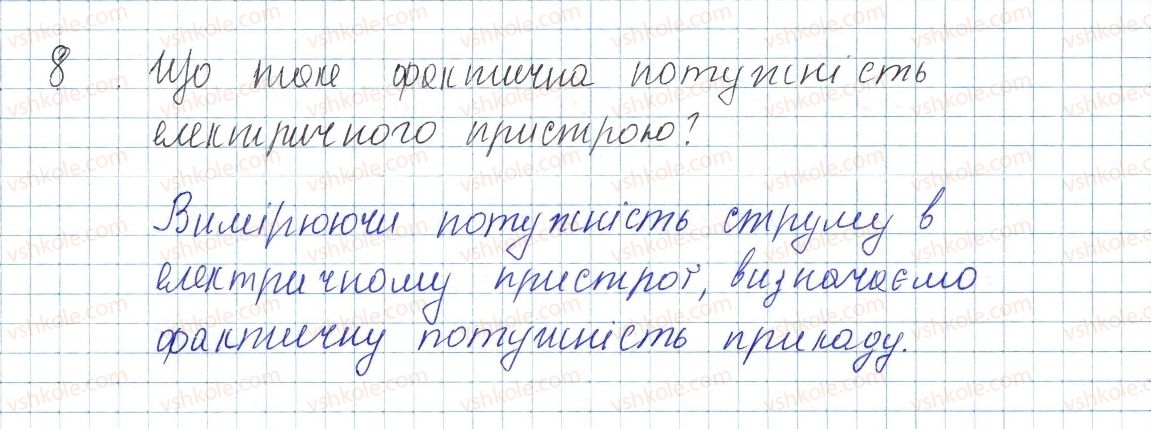 8. Що таке фактична потужність
електричного пристрою?
Вимірюючи потужність струму в
електричному пристрої, визначаємо
фактичну потужність приладу.